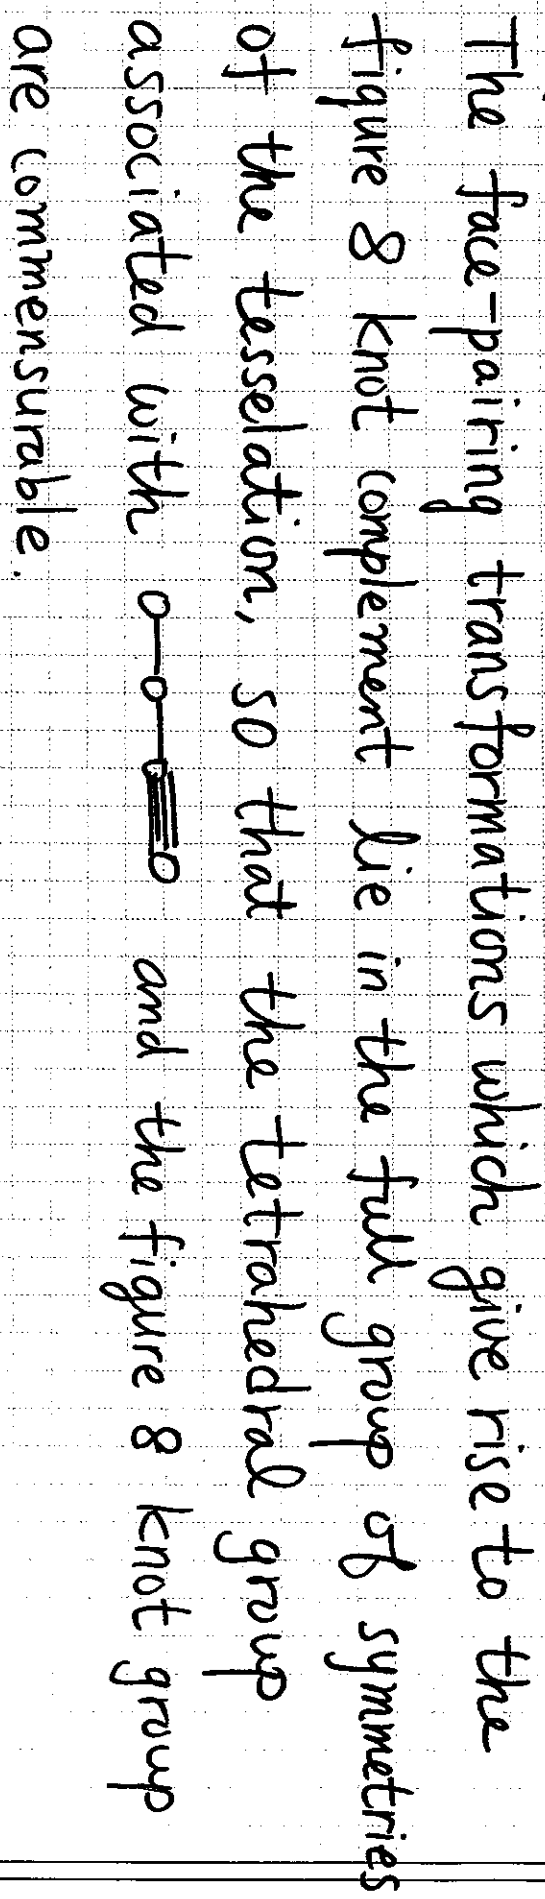 The face-pairing transformations which give rise to the
figure 8 knot complement lie in the full group of symmetries
of the tesselation, so that the tetrahedral group
associated with and the figure 8 knot group
are commensurable.